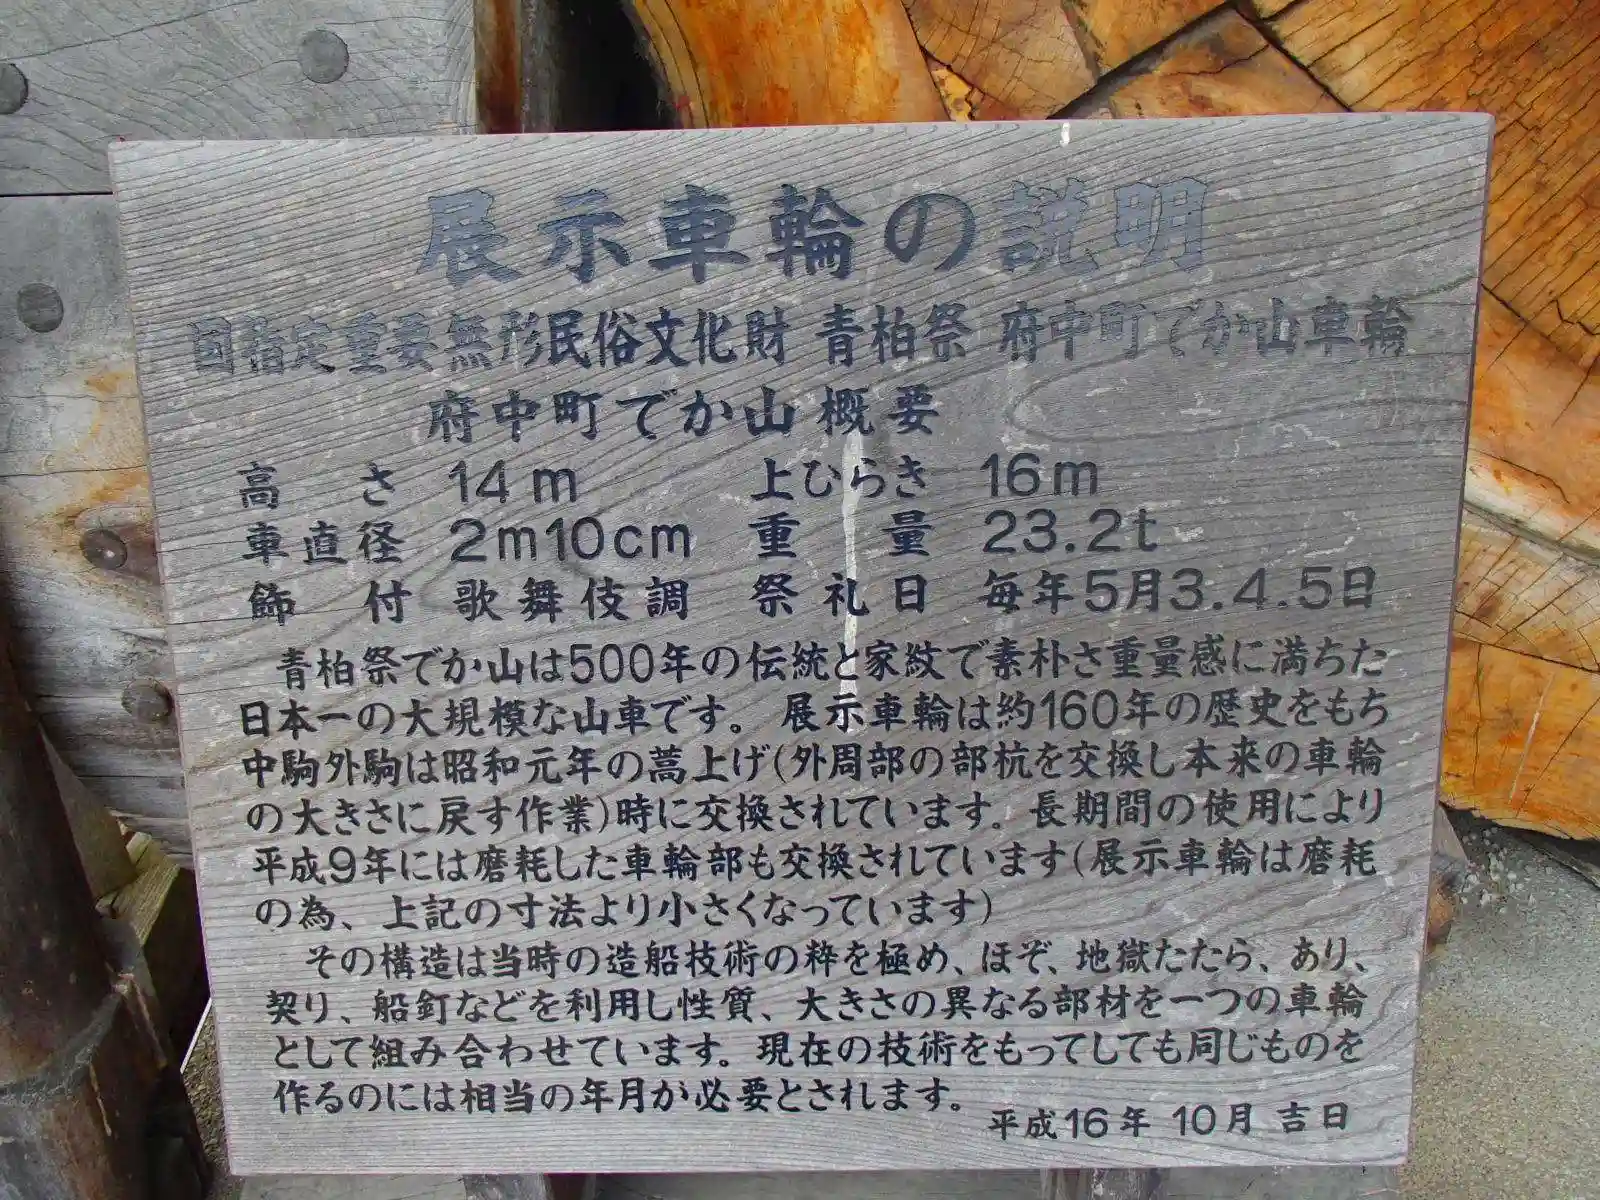 展示車輪の説明
国指定重要無形民俗文化財 青柏祭 府中町でか山車輪
府中町でか山概要
高さ 14m 上ひらき 16m
車直径 2m10cm 重量 23.2t
飾付 歌舞伎調 祭礼日 毎年5月3.4.5日
青柏祭でか山は500年の伝統と家紋で素朴さ重量感に満ちた
日本一の大規模な山車です。展示車輪は約160年の歴史をもち
中駒外駒は昭和元年の蒿上げ(外周部の部杭を交換し本来の車輪
の大きさに戻す作業)時に交換されています。長期間の使用により
平成9年には磨耗した車輪部も交換されています(展示車輪は磨耗
の為、上記の寸法より小さくなっています)
その構造は当時の造船技術の粋を極め、ほぞ、地獄たたら、あり、
契り、船釘などを利用し性質、大きさの異なる部材を一つの車輪
として組み合わせています。現在の技術をもってしても同じものを
作るのには相当の年月が必要とされます。
平成16年 10月 吉日